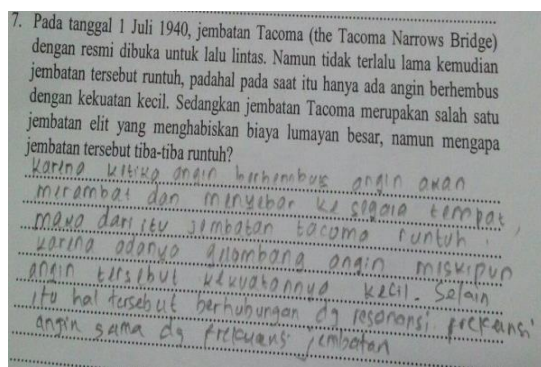 7. Pada tanggal 1 Juli 1940, jembatan Tacoma (the Tacoma Narrows Bridge)
dengan resmi dibuka untuk lalu lintas. Namun tidak terlalu lama kemudian
jembatan tersebut runtuh, padahal pada saat itu hanya ada angin berhembus
dengan kekuatan kecil. Sedangkan jembatan Tacoma merupakan salah satu
jembatan elit yang menghabiskan biaya lumayan besar, namun mengapa
jembatan tersebut tiba-tiba runtuh?
Karena ketika angin berhembus angin akan
merambat dan menyebar ke segala tempat,
maka dari itu jembatan tacoma runtuh.
karena adanya gelombang angin miskipun
angin tersebut kekuatannya kecil. Selain
itu hal tersebut berhubungan dg resonansi. frekuensi
angin sama dg frekuensi jembatan